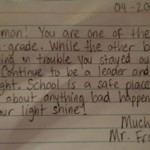 04-20
man! You are one of the
-grade. While the other b
ing in trouble you stayed ou
Continue to be a leader and
ght. School is a safe place
about anything bad happen
ur light shine!
Much
Mr. Fr